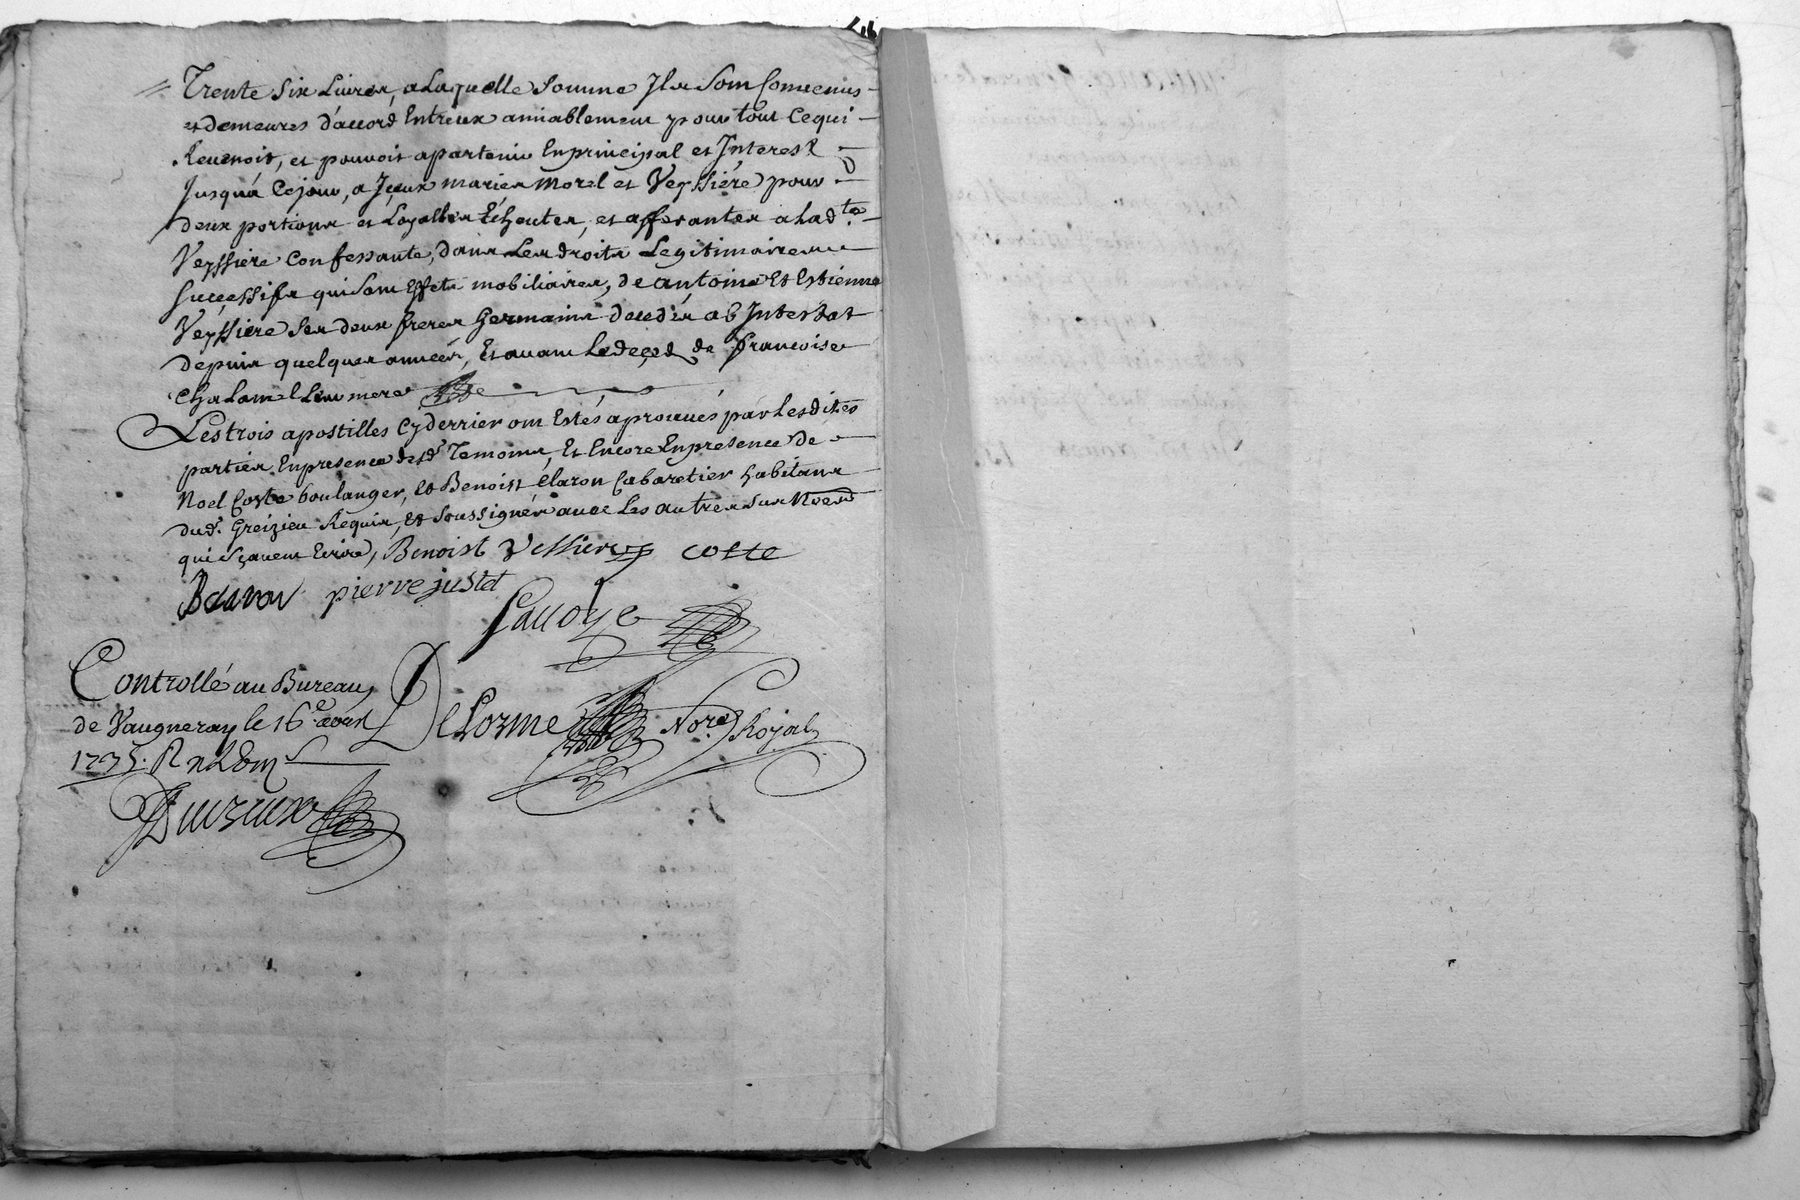 Trente Six Livres, a Laquelle Somme Ils Sont Convenus
et demeurés d'accord Entreux amiablement pour tout Cequi
Revenoit, et pouvoit apartenir Enprincipal et Interest
Jusqu'a Cejour, a Iceux mariés Morel et Veyssiére pour
deux portions et Loyalles Echeutes, et afferantes a Lad.te
Veyssiere Confessante, dans Les droits Legitimaires
Suçcessifs qui Sont Effets mobiliaires, de antoine Et Estienne
Veyssiere Ses deux freres Germains decedés ab Intestat
depuis quelques années, Et avant Ledeçed de francoise
Chalamel Leur mere
Les trois apostilles Cyderrier ont Estés aprouvés par Lesdites
parties Enpresence desd. Temoins, Et Encore Enpresence de
Noel Coste boulanger, et Benoist Claron Cabaretier habitans
dud. Greizieu Requis, et Soussignés avec Les autres Sur
qui Sçavent Ecrire, Benoist Vessiere coste
BClaron pierre justet
Savoye
Controllé au Bureau
de Vaugneray le 16e avril
DeLorme No.re Royal